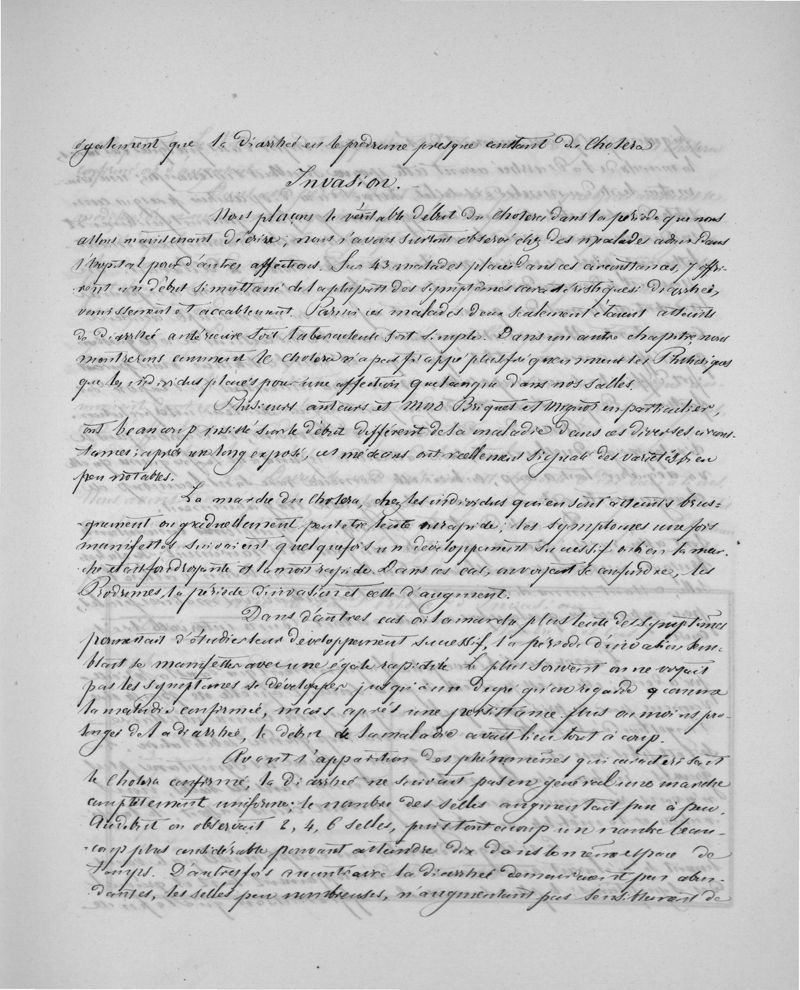 également que la diarrhée est le prodrome presque constant du Cholera
Invasion.
Nous plaçons le véritable début du Cholera dans la période que nous
allons maintenant décrire; nous l'avons souvent observé chez des malades admis dans
l'hopital pour d'autres affections. Sur 43 malades placés dans ces circonstances, 7 offri-
rent un début simultané de la plupart des symptômes caractéristiques: diarrhée,
vomissement et accablement. Parmi ces malades deux seulement étaient atteints
de diarrhée antérieure soit tuberculeuse soit simple. Dans un autre chapitre, nous
montrerons comment le cholera n'a pas frappé plus fréquemment les Phthisiques
que les individus placés pour une affection quelconque dans nos salles.
Plusieurs auteurs et Mrs Briquet et Mignot en particulier,
ont beaucoup insisté sur le début différent de la maladie dans ces diverses circons-
tances; après un long exposé, ces médecins ont réellement signalé des variétés bien
peu notables.
La marche du Cholera, chez les individus qui en sont atteints brus-
quement ou graduellement peut être lente ou rapide; les symptomes une fois
manifestés suivaient quelquefois un développement successif ou bien la mar-
che était foudroyante et la mort rapide. Dans ces cas, on voyait se confondre, les
Prodromes, la période d'invasion et celle d'augment.
Dans d'autres cas où la marche plus lente des symptômes
permettait d'étudier leur développement successif, la période d'invasion sem-
blait se manifester avec une égale rapidité. Le plus souvent on ne voyait
pas les symptomes se développer jusqu'à un degré qu'on regarde comme
la maladie confirmée, mais après une persistance plus ou moins pro-
longée de la diarrhée, le début de la maladie avait lieu tout à coup.
Avant l'apparition des phénomènes qui caractérisent
le Cholera confirmé, la diarrhée ne suivait pas en général une marche
complètement uniforme; le nombre des selles augmentait peu à peu.
Au début on observait 2, 4, 6 selles, puis tout à coup un nombre beau-
coup plus considérable pouvant atteindre dix dans le même espace de
temps. D'autres fois au contraire la diarrhée demeuraient peu abon-
dantes, les selles peu nombreuses, n'augmentant pas sensiblement de